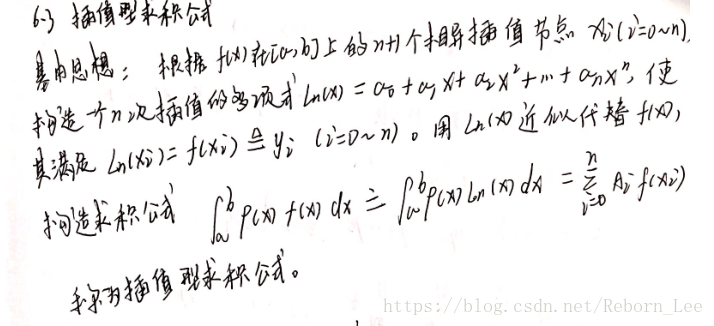 6.3 插值型求积公式
基本思想：根据 f(x) 在[a,b]上的 n+1 个相异插值节点 xi (i=0~n),
构造一个 n 次插值的多项式 Ln(x) = a0 + a1 x + a2 x² + ... + an xⁿ, 使
其满足 Ln(xi) = f(xi) ≜ yi (i=0~n)。用 Ln(x) 近似代替 f(x),
构造求积公式 ∫_a^b ρ(x) f(x) dx ≐ ∫_a^b ρ(x) Ln(x) dx = Σ_{i=0}^n Ai f(xi)
称为插值型求积公式。
https://blog.csdn.net/Reborn_Lee